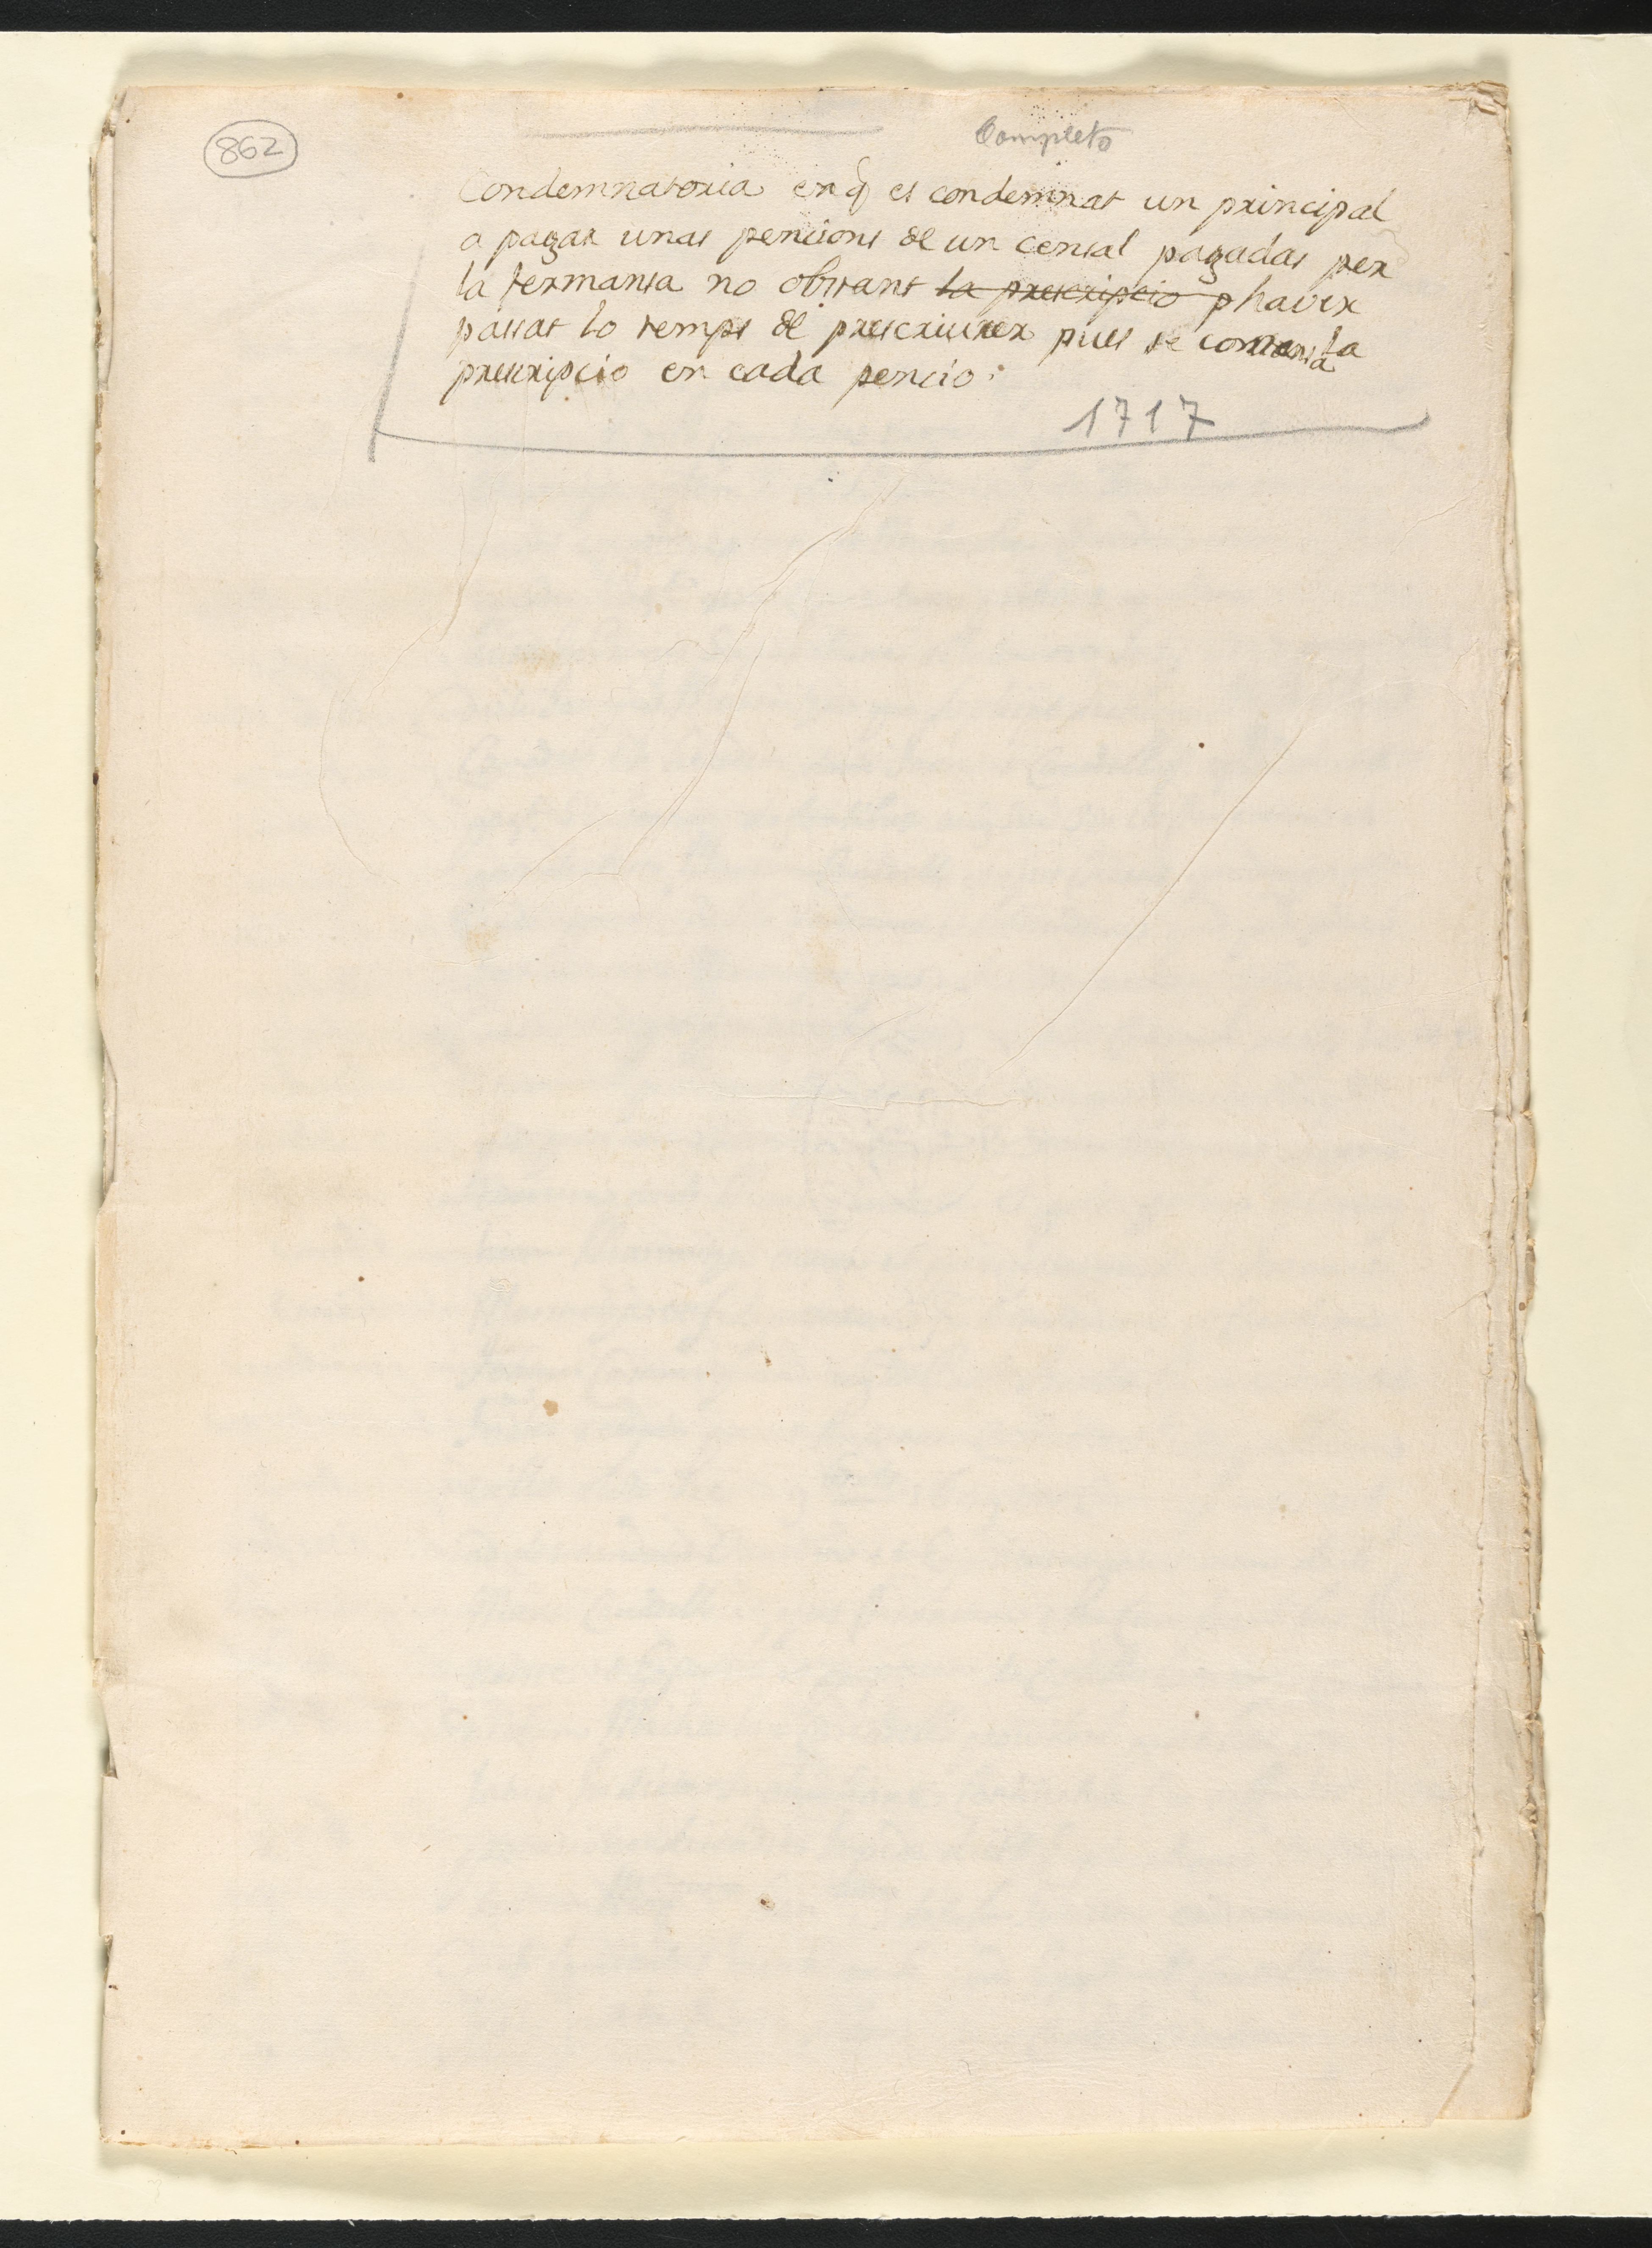 862
Completo
Condemnatoria en q̃ es condemnat un principal
a pagar unas pencions de un censal pagadas per
la fermansa no obstant la prescripcio p havir
passat lo temps de prescriurer pues se comensa la
prescripcio en cada pencio.
1717